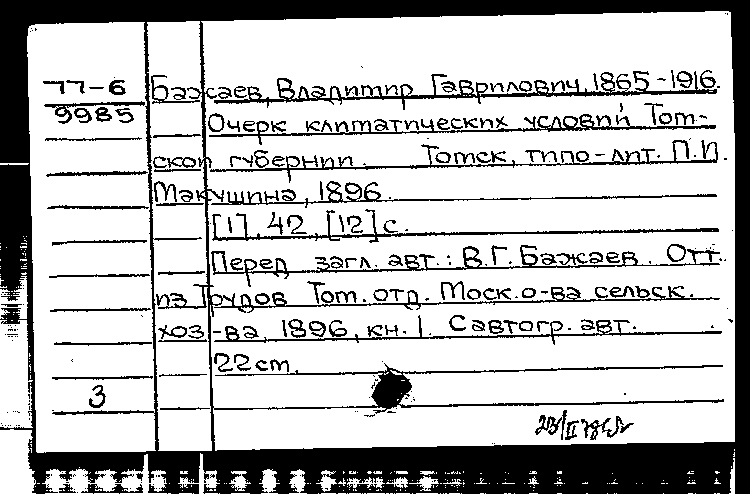 77-6 Бажаев, Владимир Гаврилович, 1865-1916.
9985 Очерк климатических условий Том-
ской губернии. Томск, типо-лит. П.И.
Макушина, 1896.
[1], 42, [12] с.
Перед загл. авт.: В.Г. Бажаев. Отт.
из Трудов Том. отд. Моск. о-ва сельск.
хоз-ва, 1896, кн. 1. С автогр. авт.
22 cm.
3